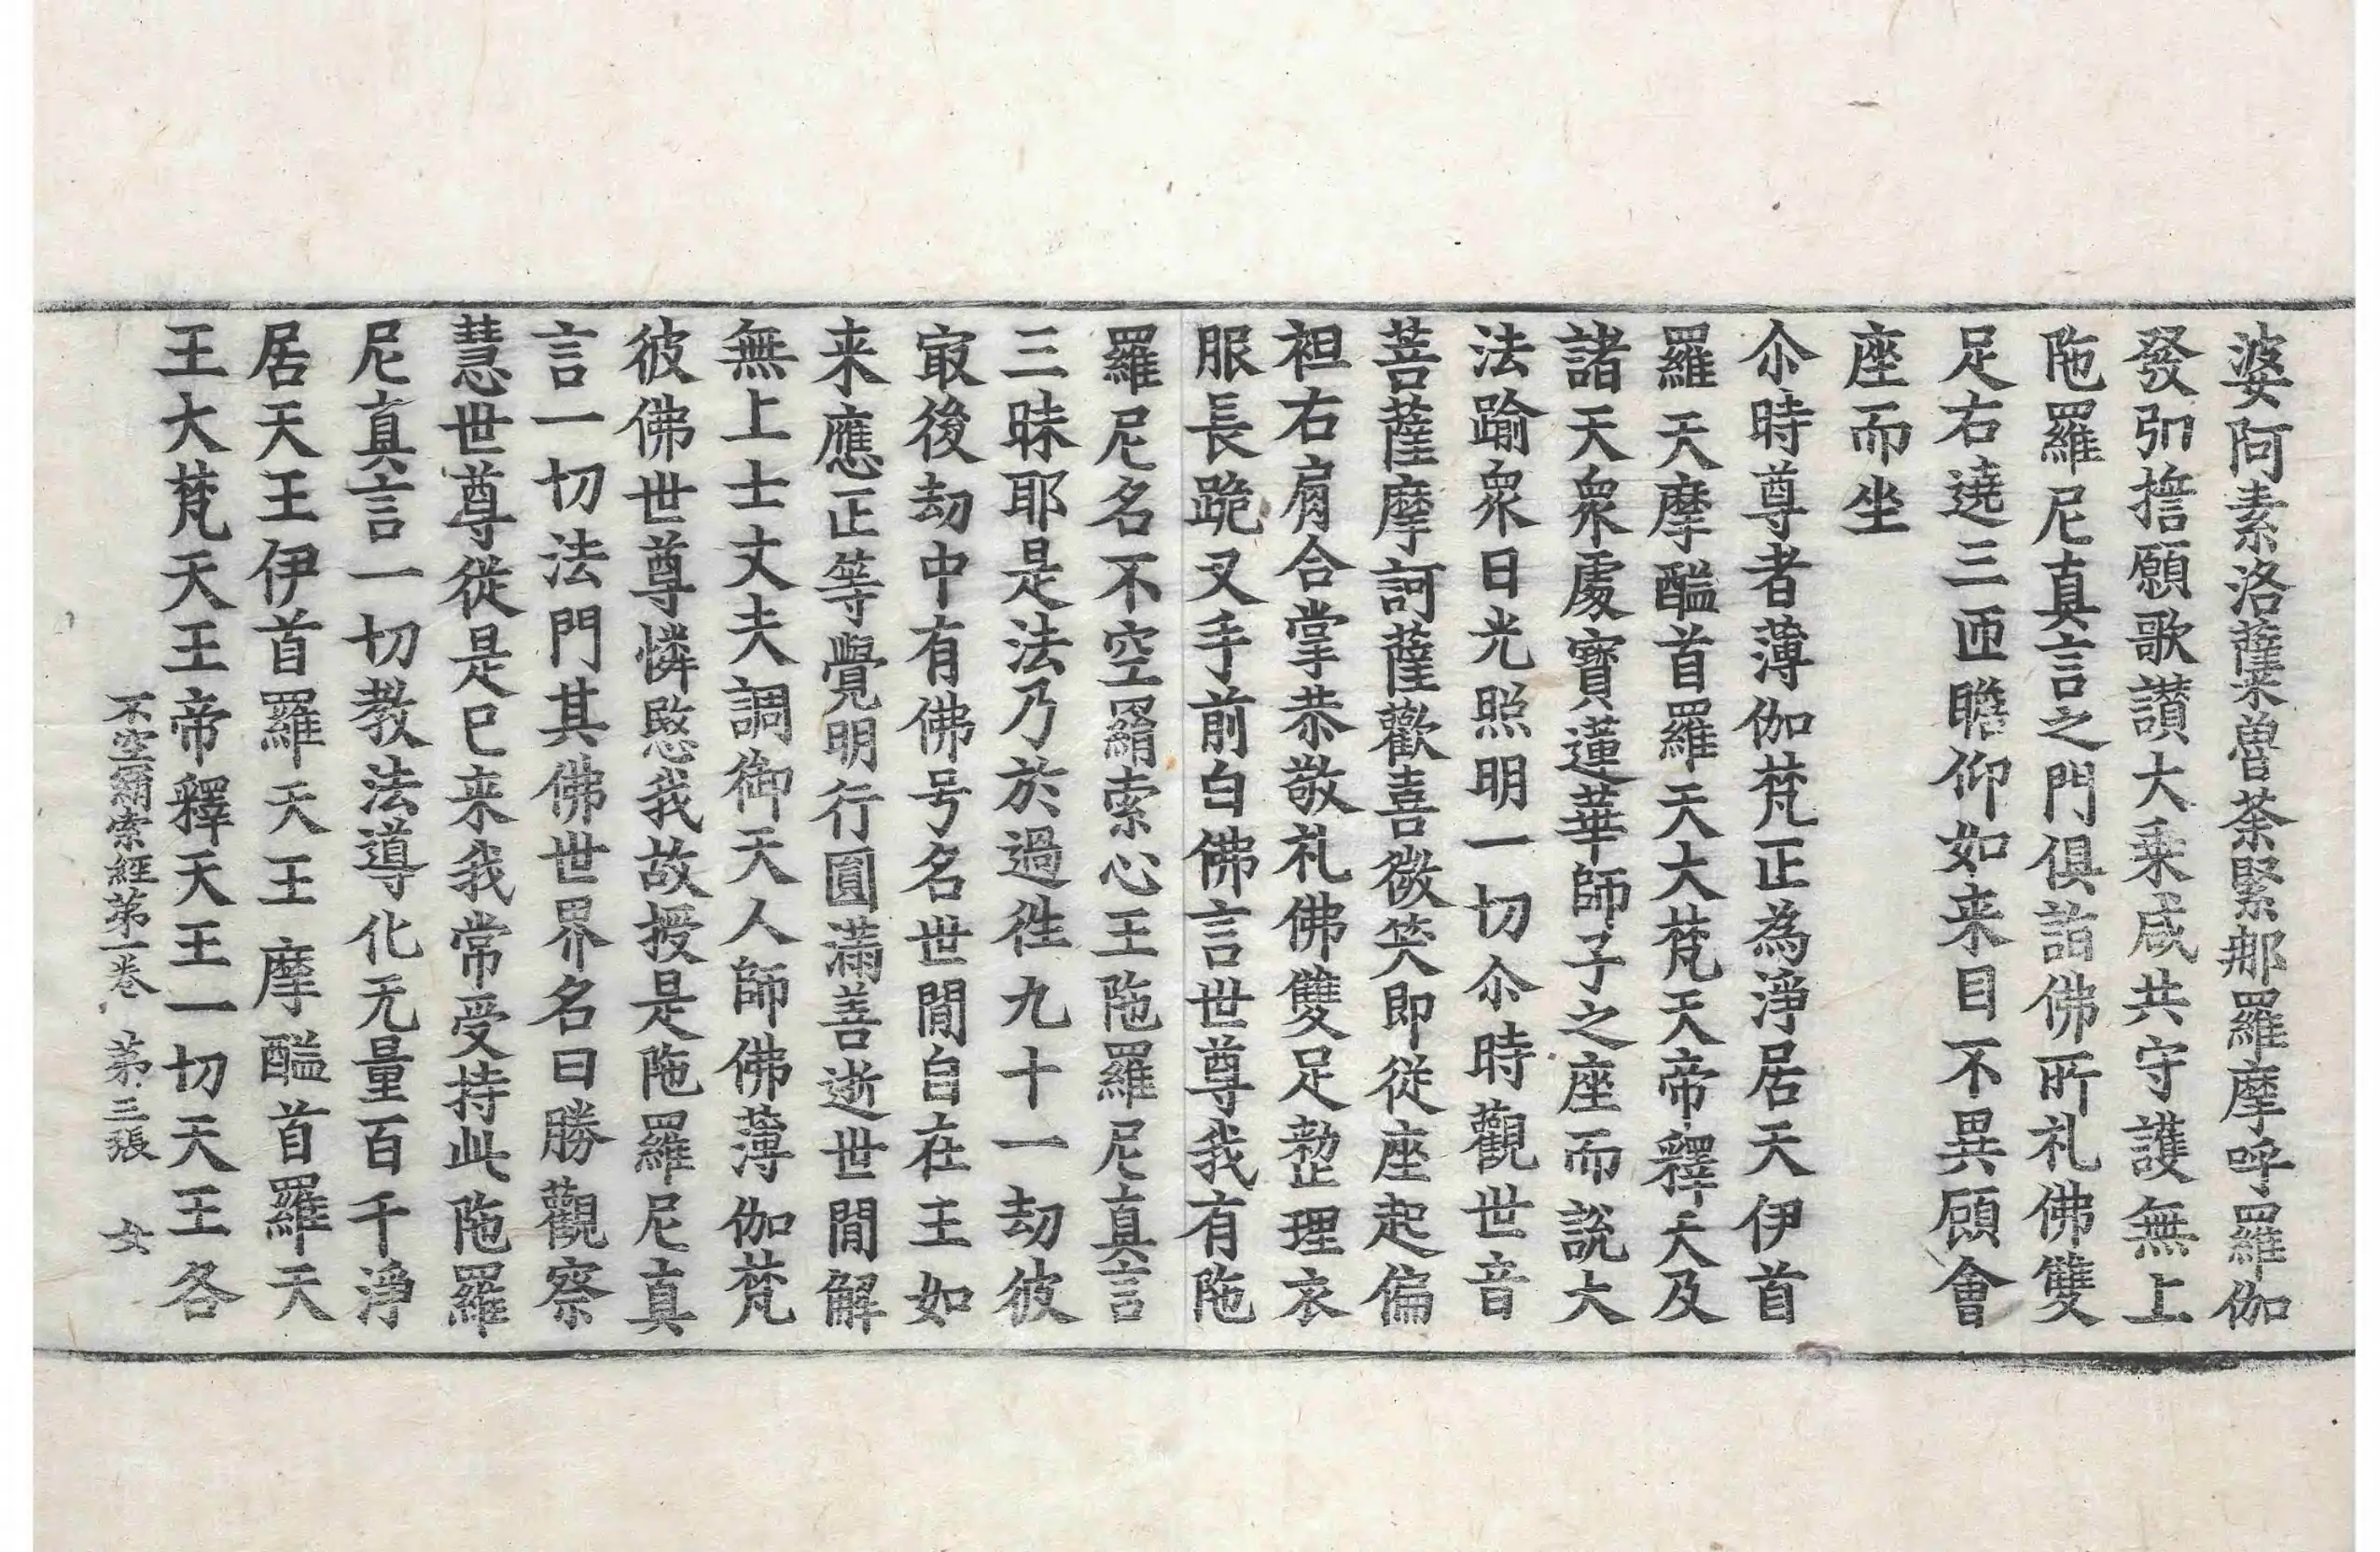 婆阿素洛孽魯荼緊那羅摩呼羅伽
發弘擔願歌讃大乗咸共守護無上
陁羅尼真言之門俱詣佛所礼佛雙
足右遶三匝瞻仰如来目不異顧會
座而坐
尒時尊者薄伽梵正為淨居天伊首
羅天摩醯首羅天大梵天帝釋天及
諸天衆處寳蓮華師子之座而說大
法踰衆日光照明一切尒時觀世音
菩薩摩訶薩歡喜微笑即從座起偏
袒右肩合掌恭敬礼佛雙足整理衣
服長跪叉手前白佛言世尊我有陁
羅尼名不空羂索心王陁羅尼真言
三昧耶是法乃於過徃九十一劫彼
㝡後劫中有佛号名世間自在王如
来應正等覺明行圓滿善逝世間解
無上士丈夫調御天人師佛薄伽梵
彼佛世尊憐愍我故授是陁羅尼真
言一切法門其佛世界名曰勝觀察
慧世尊從是已来我常受持此陁羅
尼真言一切教法導化无量百千淨
居天王伊首羅天王摩醯首羅天
王大梵天王帝釋天王一切天王各
不空羂索經第一卷 第三張 女